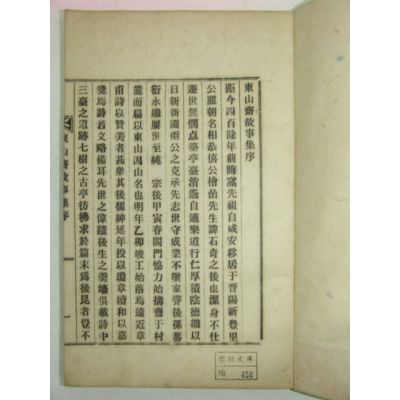 東山齋故事集序
距今四百餘年前晦窩先祖自咸安移居于晉陽新豊里
公麗朝名相恭僖公檜
先生諱石奇之後也潔身不仕
遯世無憫点築亭臺
自適樂道行仁厚積陰德繼以
日新新圃兩公之克承先志世守成業不墜家聲後孫蕃
衍永繼屢世至純
宗後甲寅春闔門恊力始搆齋于村
麓而扁以東山因山名也明年乙卯竣工始落焉遠近章
甫詩以贊美者甚衆其後儒紳延年投以瓊章續和以嘉
奬焉詩若文略備耳先世之偉蹟後生之羹墻俱載詩中
三臺之遺跡七樹之古亭彷彿求於篇末爲後昆者豈不
東山齋故事集序
一
450